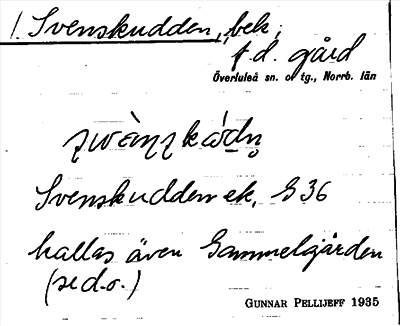 1. Svenskudden, bek.
f.d. gård
Överluleå sn. o tg., Norrb. län
Svenskudden ek. G36
kallas även Gammelgården
(se d.o.)
GUNNAR PELLIJEFF 1935